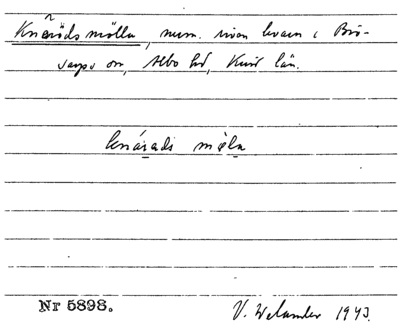 Knäröds mölla, num. utan kvarn i Brö-
sarps sn, Albo hd, Krist län.
knärads mølu
Nr 5898.
V. Welander 1943.